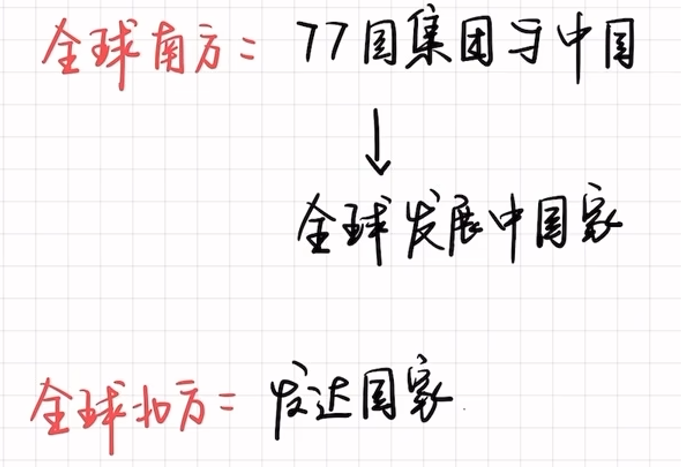 全球南方= 77国集团与中国
↓
全球发展中国家
全球北方= 发达国家